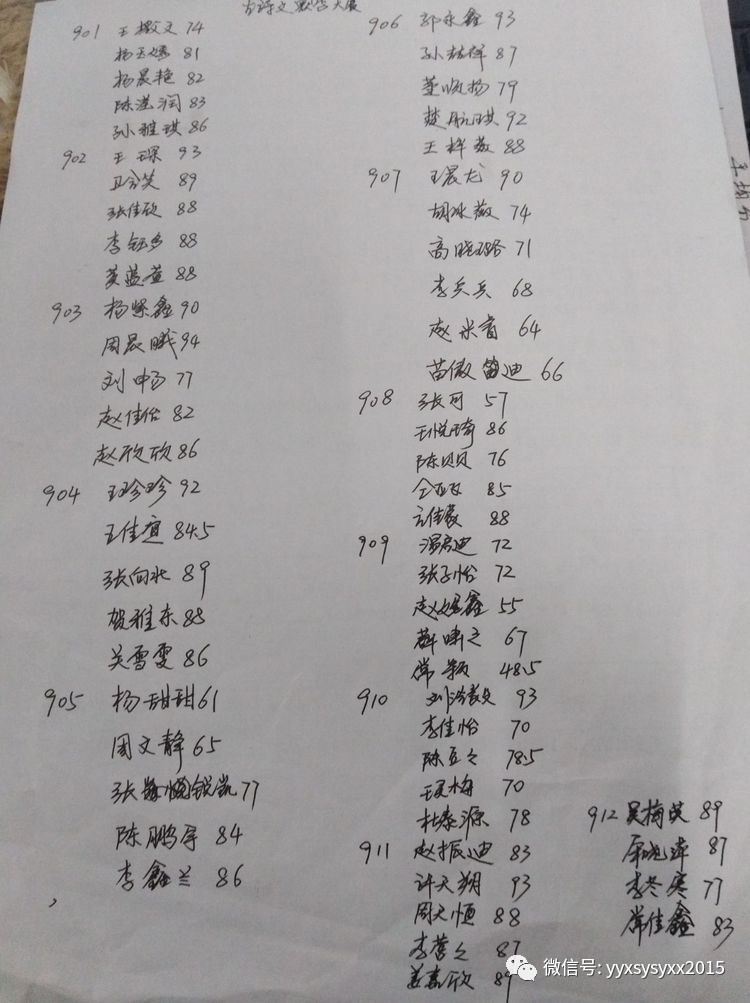 古诗文默写大赛
901 王淑文 74
杨玉婷 81
杨晨艳 82
陈滢润 83
孙雅琪 86
902 王琛 93
卫今笑 89
张佳欣 88
李钰多 88
蓝萱 88
903 杨紫鑫 90
周晨曦 94
刘畅 77
赵佳怡 82
赵欣欣 86
904 王珍珍 92
王佳宜 84.5
张向北 89
贺雅东 88
关雪雯 86
905 杨甜甜 61
周文静 65
张锐凯 77
陈鹏宇 84
李鑫兰 86
906 郭永鑫 93
孙 祥 87
董晓杨 79
楚航琪 92
王梓薇 88
907 王晨龙 90
胡冰薇 74
高晓璐 71
李兵兵 68
赵米睿 64
苗傲笛迪 66
908 张可 57
王悦琦 86
陈贝贝 76
85
88
909 温 迪 72
张子怡 72
赵 鑫 55
薛啸之 67
常颖 48.5
910 刘浩 93
李佳怡 70
陈豆豆 78.5
梅 70
杜泰源 78
911 赵振迪 83
许天翔 93
周天恒 88
李蕾之 87
姜嘉欣 89
912 吴梅英 89
晓萍 87
李冬寒 77
佳鑫 83
微信号: yyxsysyxx2015